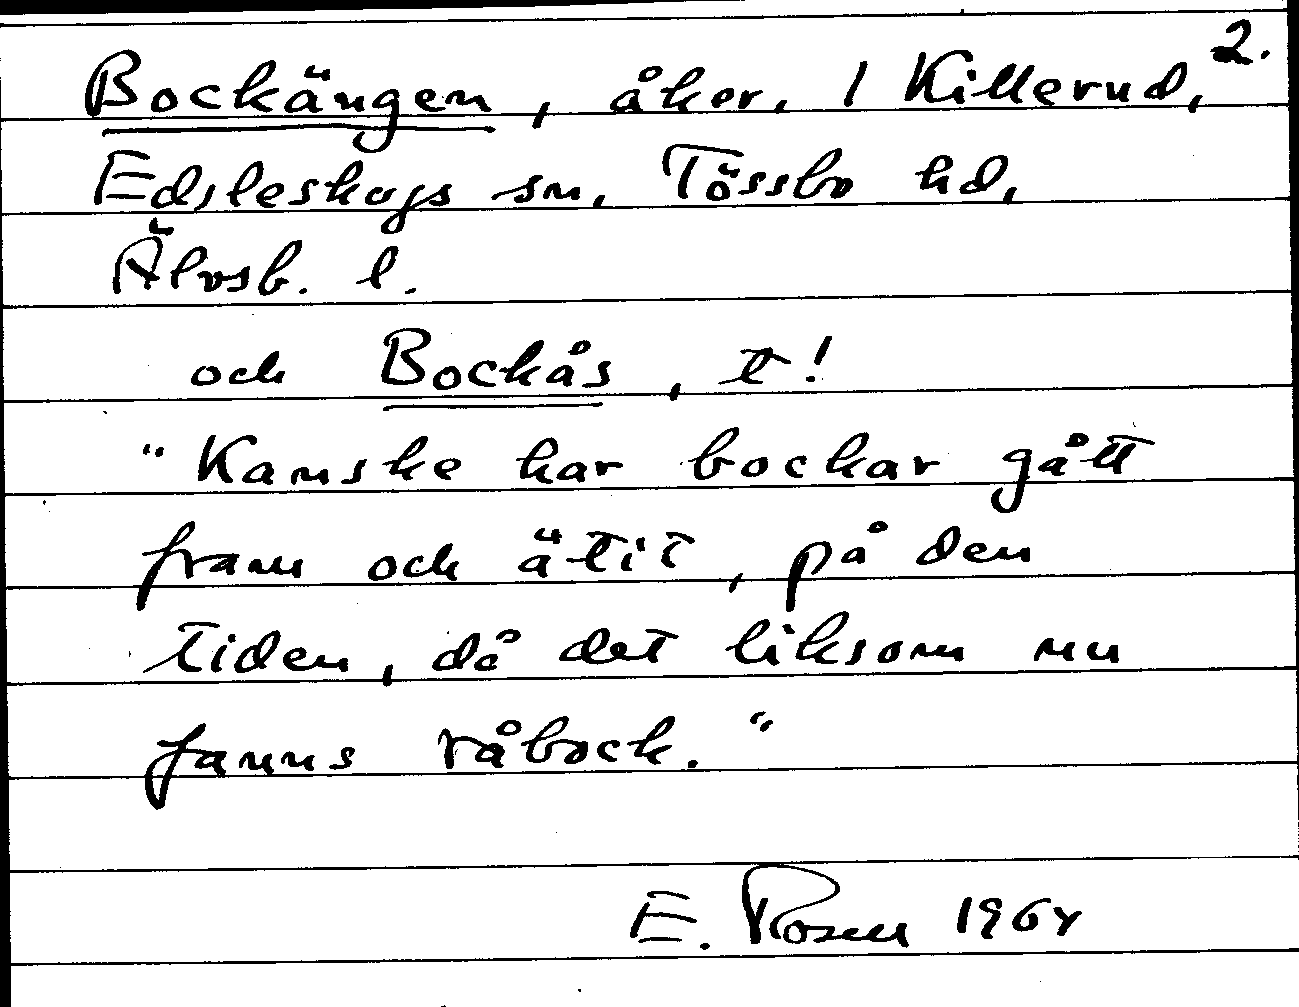 2.
Bockängen, åker, 1 Killerud,
Edsleskogs sn, Tössbo hd,
Älvsb. l.
och Bockås, t!
"Kanske har bockar gått
fram och ätit, på den
tiden, då det liksom nu
fanns råbock."
E. Rosen 1964